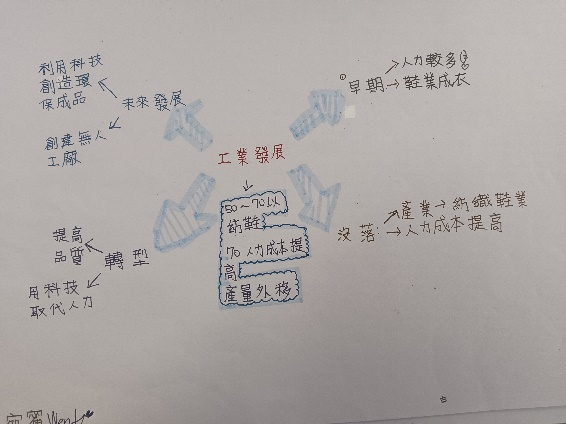 利用科技
創造環
保成品
未來發展
創建無人
工廠
人力較多
早期→鞋業成衣
工業發展
50~70以
紡鞋
70人力成本提
高
產量外移
產業→紡織鞋業
沒落:→人力成本提高
提高
品質
轉型
用科技
取代人力